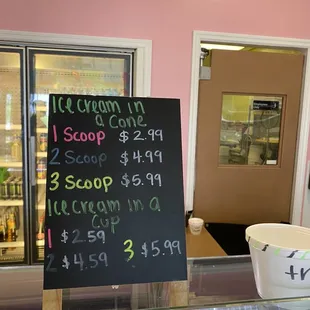 Ice cream in
a Cone
1 Scoop $2.99
2 Scoop $4.99
3 Scoop $5.99
Ice cream in a
Cup
1 $2.59
2 $4.59 3 $5.59